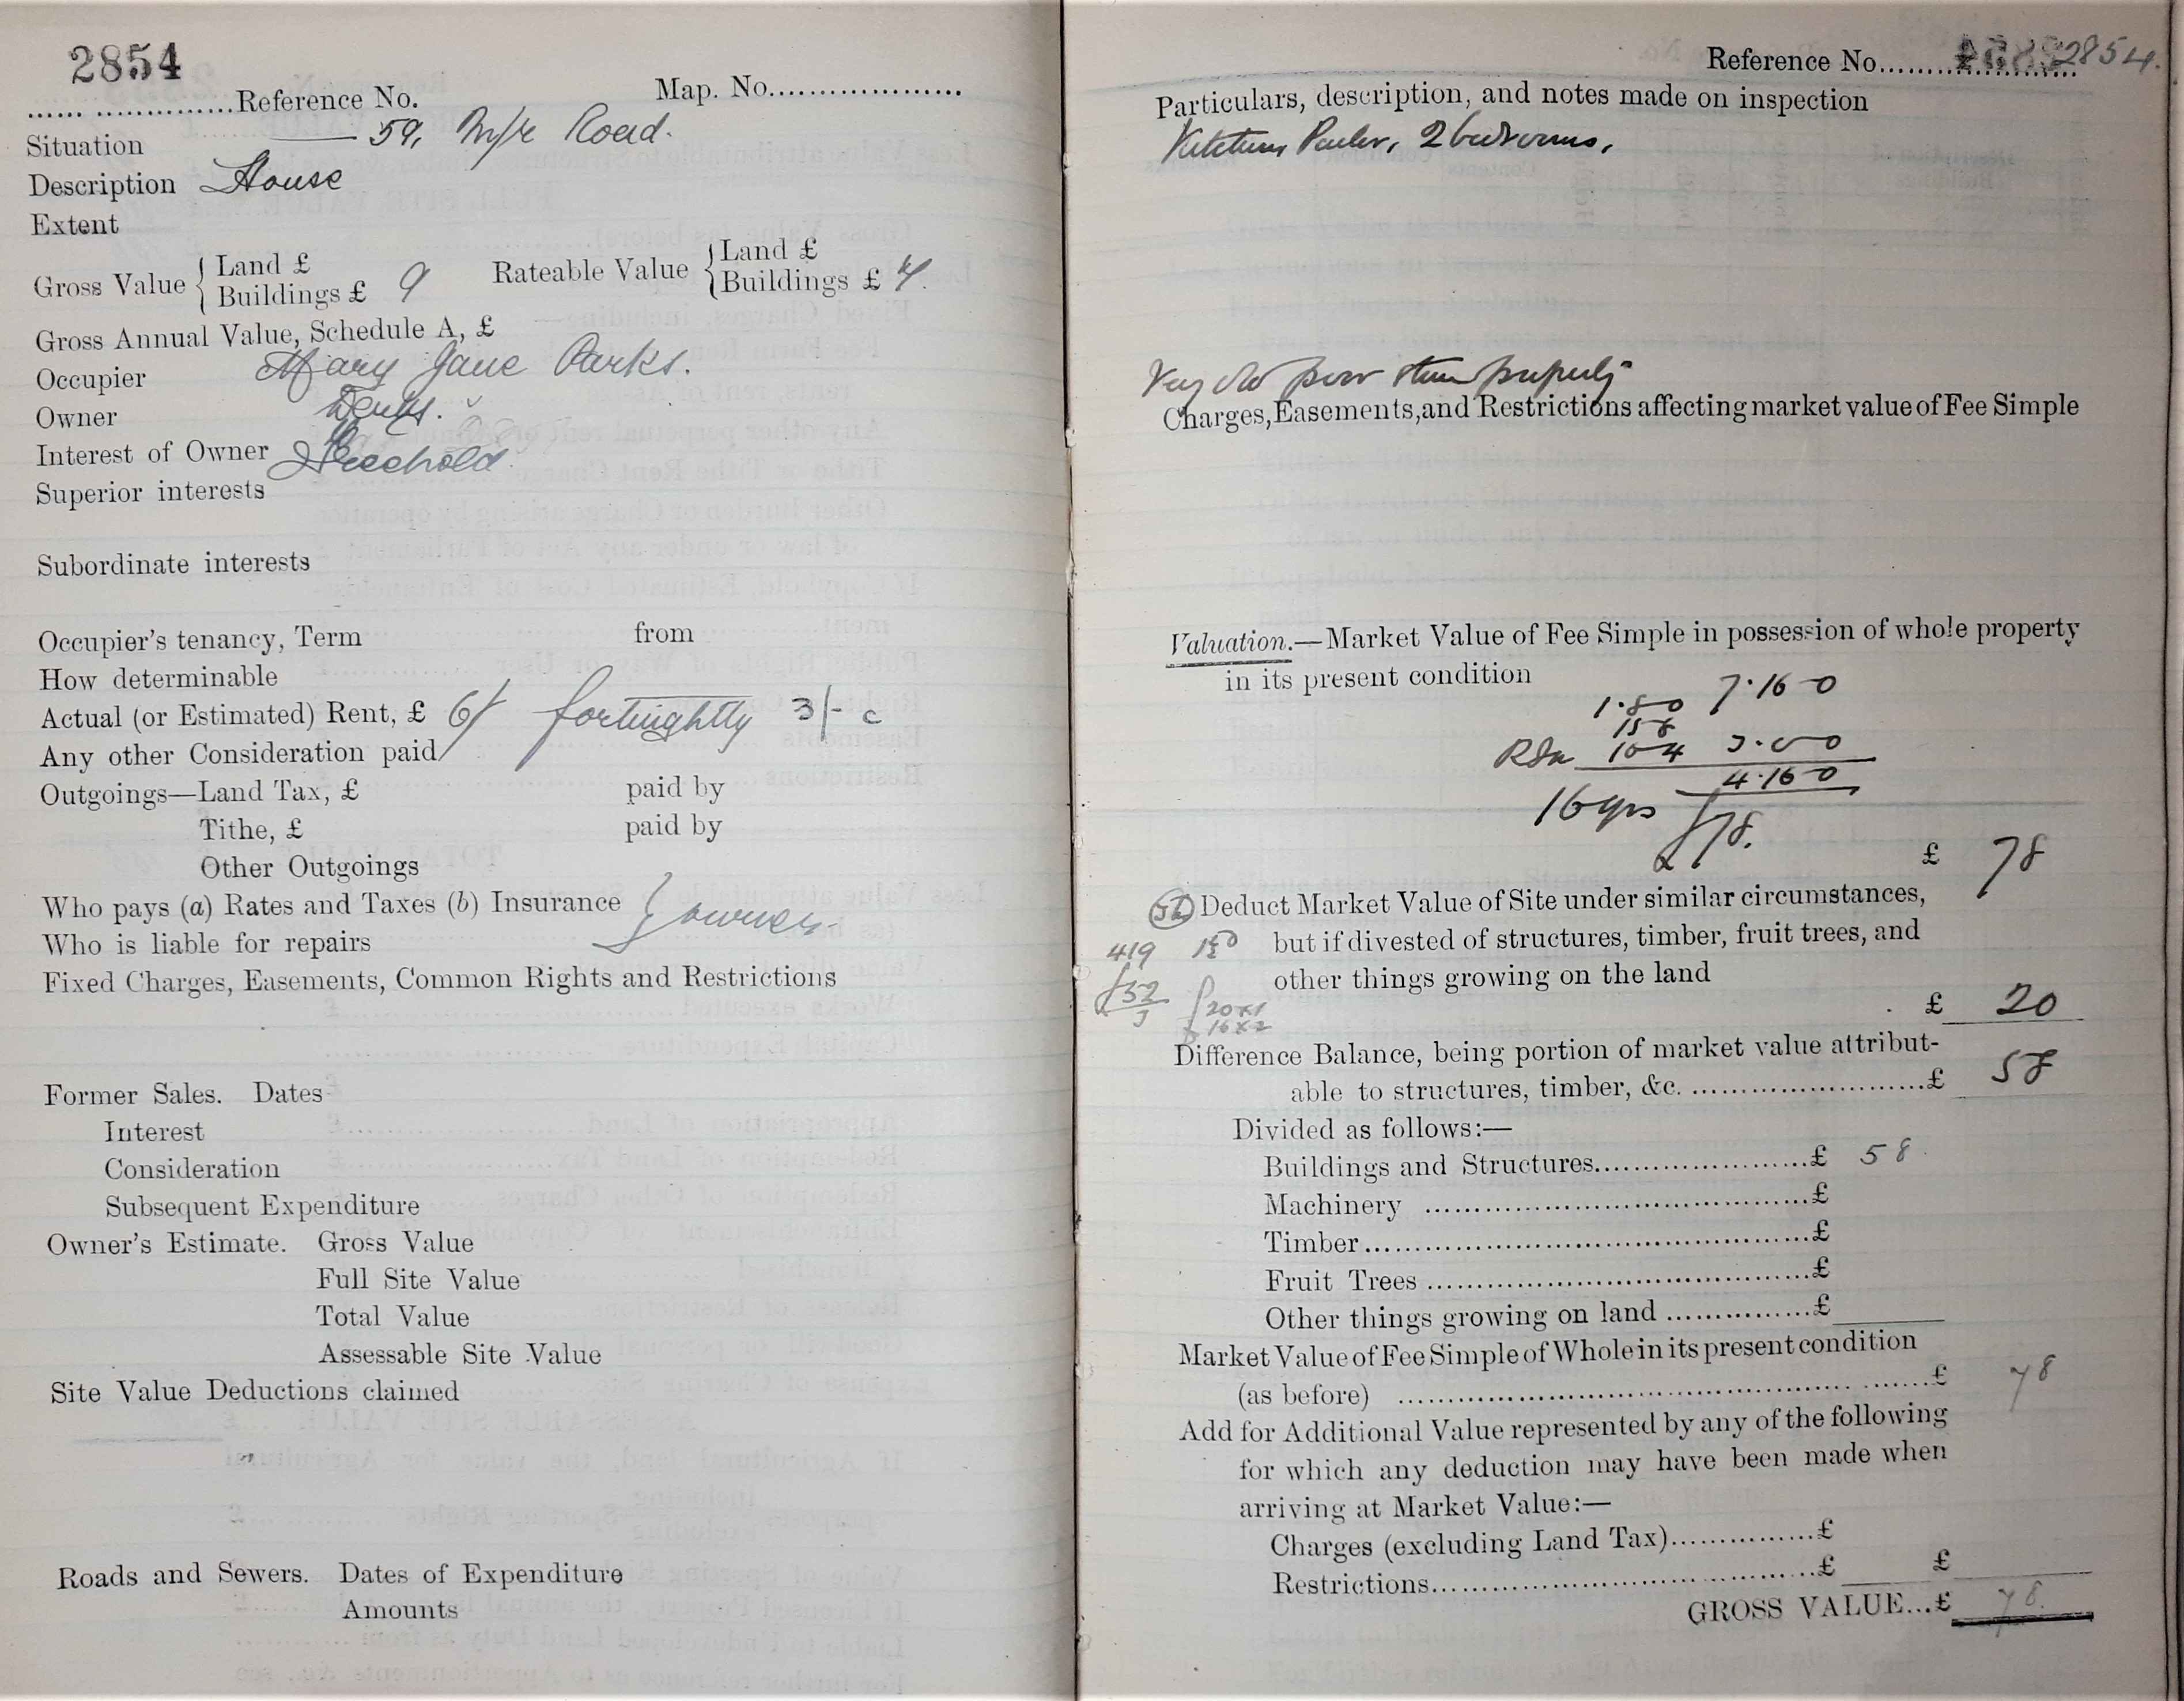 2854
...... ...............Reference No. Map. No...................
Situation — 59, M/r Road.
Description House
Extent
Gross Value { Land £
Buildings £ 9 Rateable Value { Land £
Buildings £
Gross Annual Value, Schedule A, £
Occupier Mary Jane Parks.
Owner
Interest of Owner Freehold
Superior interests
Subordinate interests
Occupier's tenancy, Term from
How determinable
Actual (or Estimated) Rent, £ 6/ fortnightly 3/- c
Any other Consideration paid
Outgoings—Land Tax, £ paid by
Tithe, £ paid by
Other Outgoings
Who pays (a) Rates and Taxes (b) Insurance } owner
Who is liable for repairs
Fixed Charges, Easements, Common Rights and Restrictions
Former Sales. Dates
Interest
Consideration
Subsequent Expenditure
Owner's Estimate. Gross Value
Full Site Value
Total Value
Assessable Site Value
Site Value Deductions claimed
Roads and Sewers. Dates of Expenditure
Amounts
Reference No. 2854.
Particulars, description, and notes made on inspection
Kitchen Parlor, 2 bedrooms,
Very old poor stone property
Charges, Easements, and Restrictions affecting market value of Fee Simple
Valuation.—Market Value of Fee Simple in possession of whole property
in its present condition
7.16 0
1.8 0
15 8
10 4 3.0 0
4.16 0
16 yrs £78.
£ 78
Deduct Market Value of Site under similar circumstances,
but if divested of structures, timber, fruit trees, and
other things growing on the land
419
£52
3
20 x 1
16 x 2
£ 20
Difference Balance, being portion of market value attribut-
able to structures, timber, &c. ........................£ 58
Divided as follows:—
Buildings and Structures.......................£ 58
Machinery .......................................£
Timber.............................................£
Fruit Trees .......................................£
Other things growing on land ...............£
Market Value of Fee Simple of Whole in its present condition
(as before) ..........................................£ 78
Add for Additional Value represented by any of the following
for which any deduction may have been made when
arriving at Market Value:—
Charges (excluding Land Tax)...............£
Restrictions.......................................£ £
GROSS VALUE...£ 78.